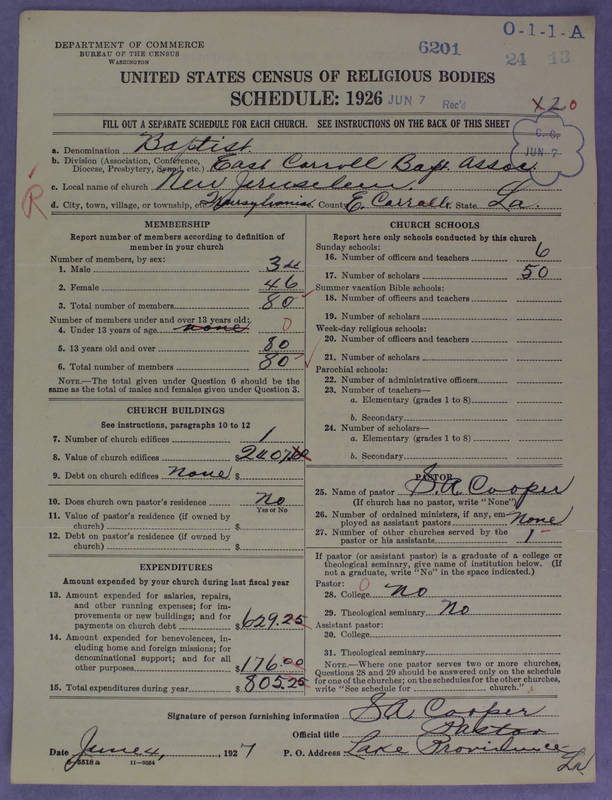 O-1-1-A
DEPARTMENT OF COMMERCE
BUREAU OF THE CENSUS
WASHINGTON
6201
24 13
UNITED STATES CENSUS OF RELIGIOUS BODIES
SCHEDULE: 1926 JUN 7 Rec'd
x20
FILL OUT A SEPARATE SCHEDULE FOR EACH CHURCH. SEE INSTRUCTIONS ON THE BACK OF THIS SHEET
C. C.
JUN 7
a. Denomination Baptist
b. Division (Association, Conference, Diocese, Presbytery, Synod, etc.) East Carroll Bapt. Assoc.
c. Local name of church New Jeruselem
R
d. City, town, village, or township, or Transylvania County E. Carroll State La.
MEMBERSHIP
Report number of members according to definition of
member in your church
Number of members, by sex:
1. Male 34
2. Female 46
3. Total number of members 80
Number of members under and over 13 years old:
4. Under 13 years of age none 0
5. 13 years old and over 80
6. Total number of members 80
NOTE.—The total given under Question 6 should be the
same as the total of males and females given under Question 3.
CHURCH BUILDINGS
See instructions, paragraphs 10 to 12
7. Number of church edifices 1
8. Value of church edifices $2407.00
9. Debt on church edifices none $
10. Does church own pastor's residence No
Yes or No
11. Value of pastor's residence (if owned by
church) $
12. Debt on pastor's residence (if owned by
church) $
EXPENDITURES
Amount expended by your church during last fiscal year
13. Amount expended for salaries, repairs,
and other running expenses; for im-
provements or new buildings; and for
payments on church debt $629.25
14. Amount expended for benevolences, in-
cluding home and foreign missions; for
denominational support; and for all
other purposes $176.00
15. Total expenditures during year $805.25
CHURCH SCHOOLS
Report here only schools conducted by this church
Sunday schools:
16. Number of officers and teachers 6
17. Number of scholars 50
Summer vacation Bible schools:
18. Number of officers and teachers
19. Number of scholars
Week-day religious schools:
20. Number of officers and teachers
21. Number of scholars
Parochial schools:
22. Number of administrative officers
23. Number of teachers—
a. Elementary (grades 1 to 8)
b. Secondary
24. Number of scholars—
a. Elementary (grades 1 to 8)
b. Secondary
PASTOR
25. Name of pastor S. A. Cooper
(If church has no pastor, write "None")
26. Number of ordained ministers, if any, em-
ployed as assistant pastors None
27. Number of other churches served by the
pastor or his assistants 1
If pastor (or assistant pastor) is a graduate of a college or
theological seminary, give name of institution below. (If
not a graduate, write "No" in the space indicated.)
Pastor: 0
28. College No
29. Theological seminary No
Assistant pastor:
30. College
31. Theological seminary
NOTE.—Where one pastor serves two or more churches,
Questions 28 and 29 should be answered only on the schedule
for one of the churches; on the schedules for the other churches,
write "See schedule for church."
Signature of person furnishing information S. A. Cooper
Official title Pastor
Date June 4, 1927 P. O. Address Lake Providence
La
8-5518 a 11-9954